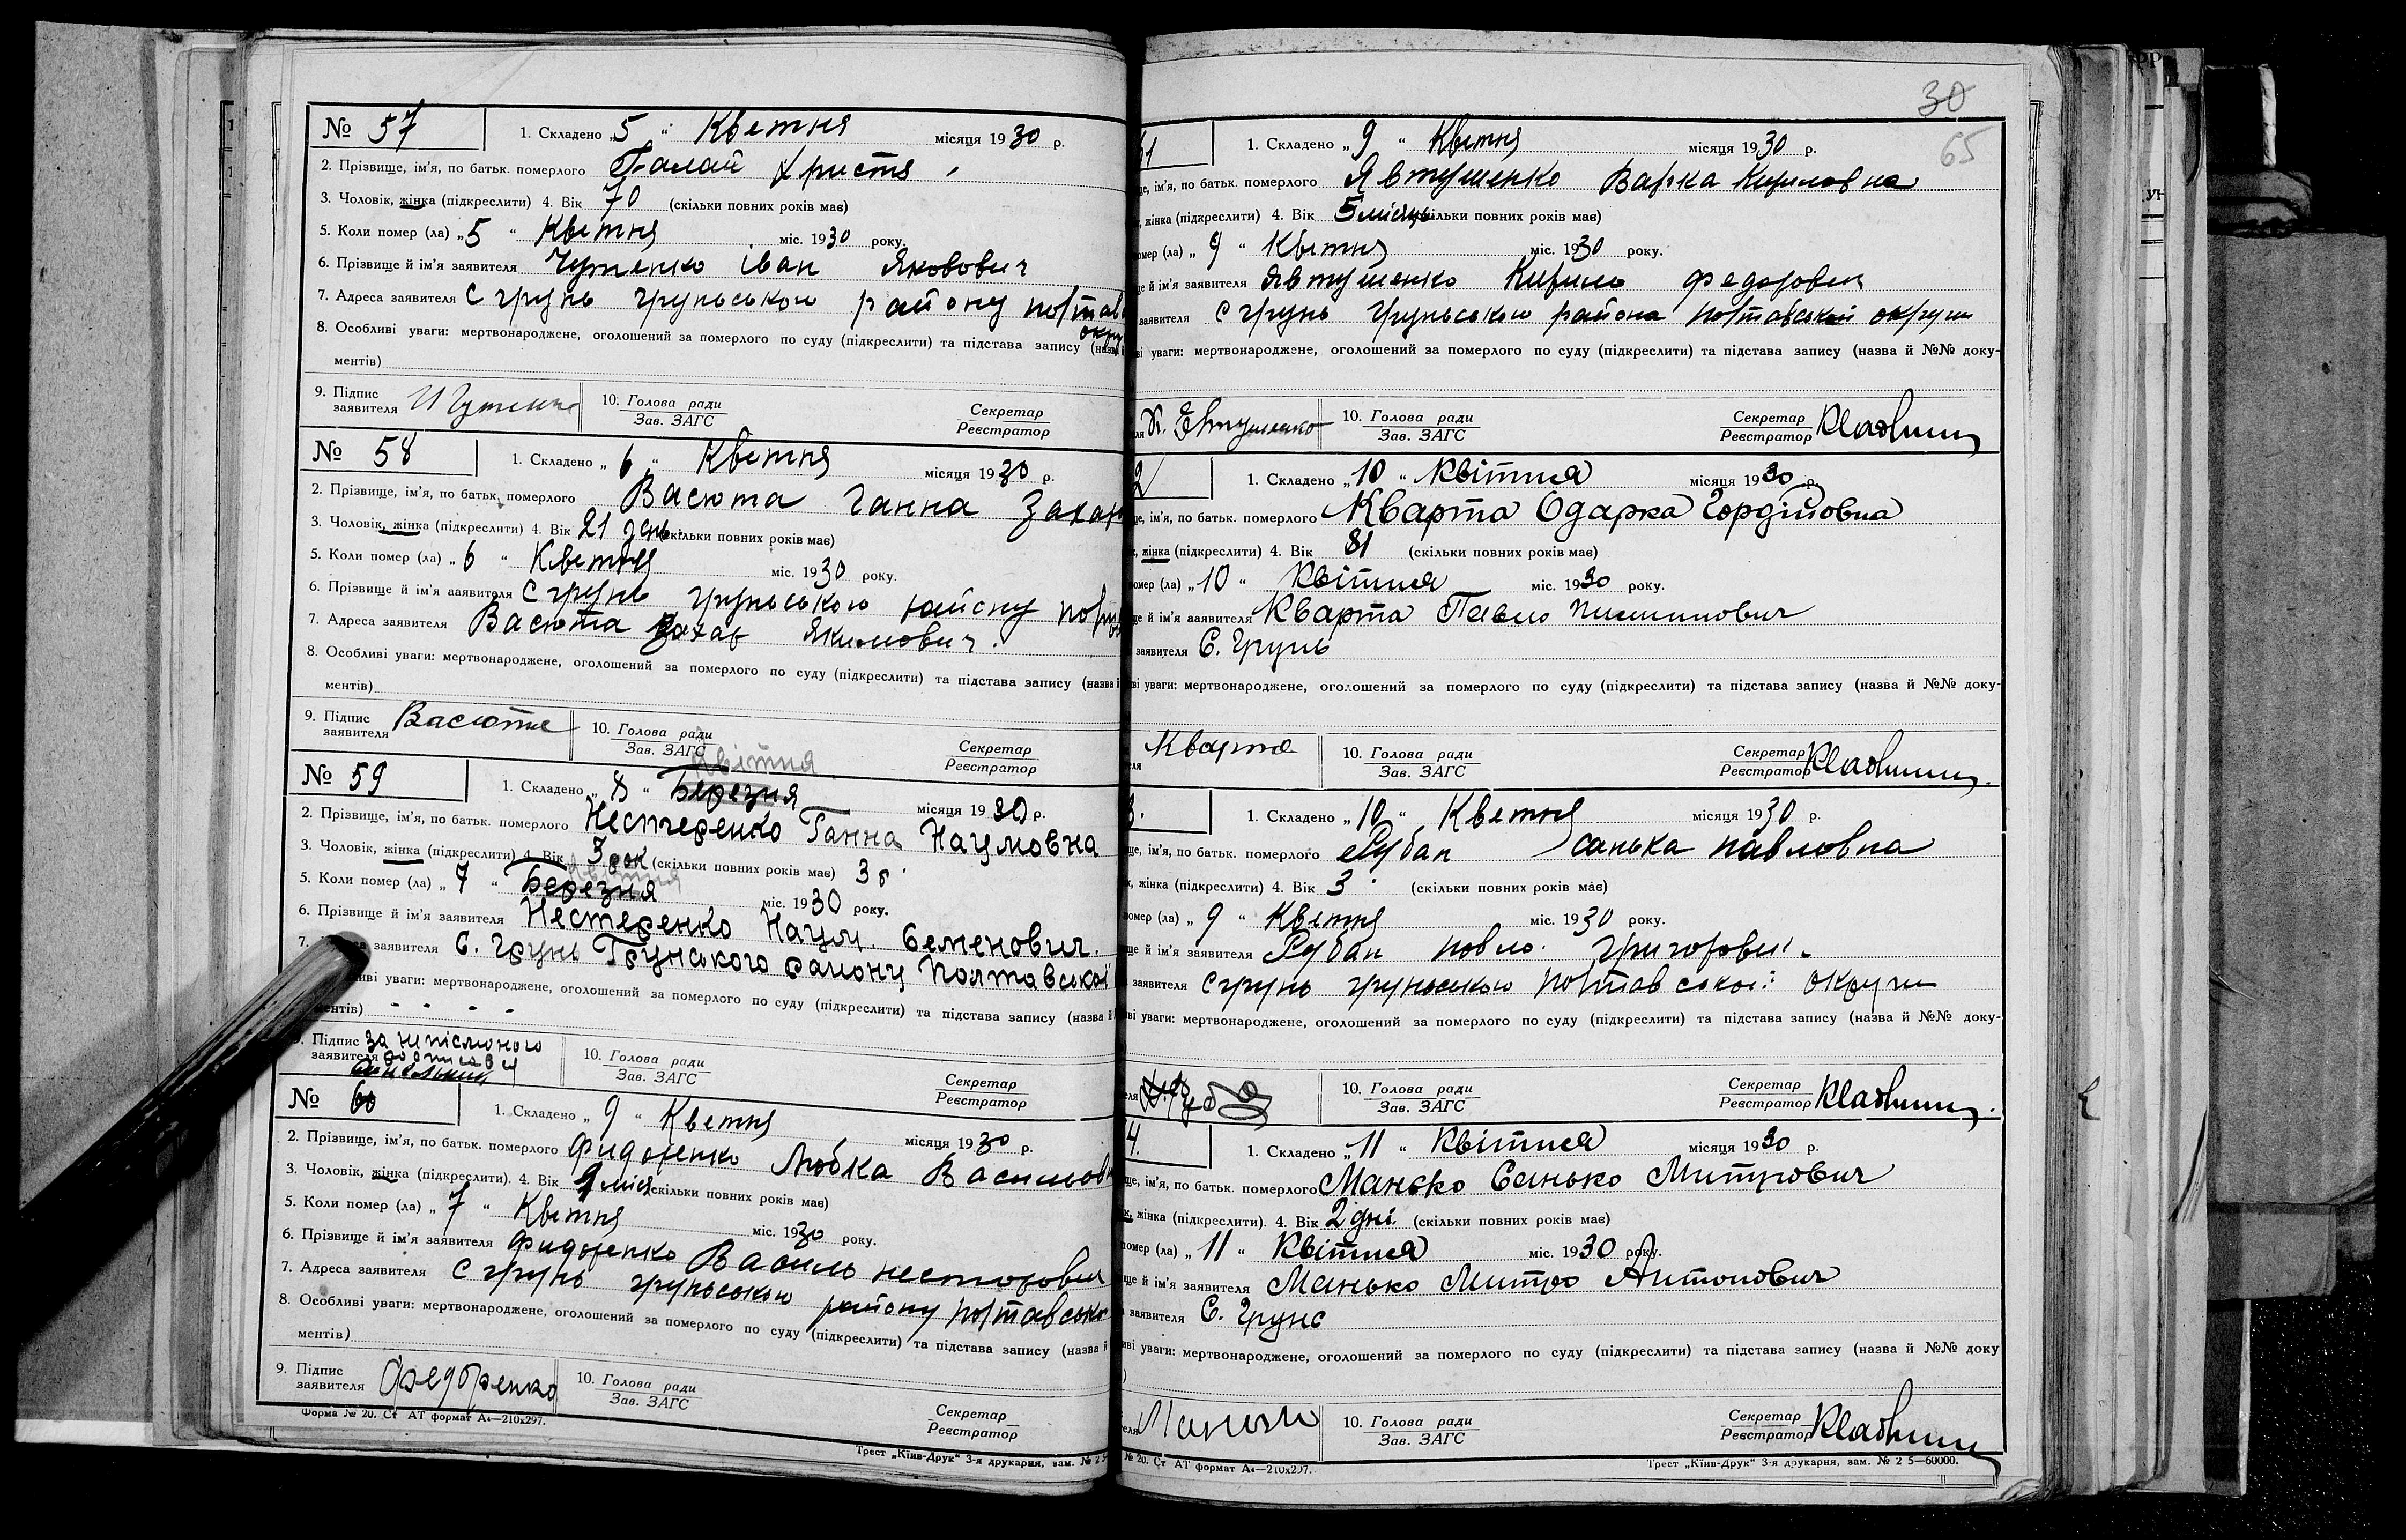 № 57 1. Складено „5" Кветня місяця 1930 р.
2. Прізвище, ім'я, по батьк. померлого Палай Христя
3. Чоловік, жінка (підкреслити) 4. Вік 70 (скільки повних років має)
5. Коли помер (ла) „5" Кветня міс. 1930 року.
6. Прізвище й ім'я заявителя Іван Яковович
7. Адреса заявителя с грунь груньського району
8. Особливі уваги: мертвонароджене, оголошений за померлого по суду (підкреслити) та підстава запису (назва й
ментів)
9. Підпис заявителя 10. Голова ради Зав. ЗАГС Секретар Реєстратор
№ 58 1. Складено „6" Кветня місяця 1930 р.
2. Прізвище, ім'я, по батьк. померлого Васюта Ганна Захар
3. Чоловік, жінка (підкреслити) 4. Вік 21 день (скільки повних років має)
5. Коли помер (ла) „6" Кветня міс. 1930 року.
6. Прізвище й ім'я заявителя с грунь груньського району
7. Адреса заявителя Васюта Захар Якимович.
8. Особливі уваги: мертвонароджене, оголошений за померлого по суду (підкреслити) та підстава запису (назва й
ментів)
9. Підпис заявителя Васюта 10. Голова ради Зав. ЗАГС Секретар Реєстратор
квітня
№ 59 1. Складено „8" Березня місяця 1930 р.
2. Прізвище, ім'я, по батьк. померлого Нестеренко Ганна Наумовна
3. Чоловік, жінка (підкреслити) 4. Вік 3 рок (скільки повних років має) 3
квітня
5. Коли помер (ла) „7" Березня міс. 1930 року.
6. Прізвище й ім'я заявителя Нестеренко Наум. Семенович.
7. заявителя С. Грунь Грунського району Полтавської
уваги: мертвонароджене, оголошений за померлого по суду (підкреслити) та підстава запису (назва й
ментів) - - - -
Підпис заявителя за неписменого 10. Голова ради Зав. ЗАГС Секретар Реєстратор
№ 60 1. Складено „9" Кветня місяця 1930 р.
2. Прізвище, ім'я, по батьк. померлого Фидоренко Любка Васильов
3. Чоловік, жінка (підкреслити). 4. Вік 9 міся (скільки повних років має)
5. Коли помер (ла) „7" Кветня міс. 1930 року.
6. Прізвище й ім'я заявителя Фидоренко Василь несторович
7. Адреса заявителя с грунь груньського району полтавсько
8. Особливі уваги: мертвонароджене, оголошений за померлого по суду (підкреслити) та підстава запису (назва й
ментів)
9. Підпис заявителя Федоренко 10. Голова ради Зав. ЗАГС Секретар Реєстратор
Форма № 20. Ст АТ формат А₄—210х297.
Трест „Київ-Друк" 3-я друкарня, зам. № 2 5
30
65
1 1. Складено „9" Кветня місяця 1930 р.
ще, ім'я, по батьк. померлого Явтушенко Варка Кириловна
жінка (підкреслити) 4. Вік 5 місяць (скільки повних років має)
омер (ла) „9" Кветня міс. 1930 року.
ще й ім'я заявителя Явтушенко Кирило федорович
заявителя с грунь Груньського района полтавської округи
ві уваги: мертвонароджене, оголошений за померлого по суду (підкреслити) та підстава запису (назва й №№ доку-
К. Евтушенко 10. Голова ради Зав. ЗАГС Секретар Реєстратор
2 1. Складено „10" Квітня місяця 1930 р.
ще, ім'я, по батьк. померлого Кварта Одарка Гордіїовна
жінка (підкреслити) 4. Вік 81 (скільки повних років має)
омер (ла) „10" Квітня міс. 1930 року.
ще й ім'я заявителя Кварта Павло
заявителя С. Грунь
ві уваги: мертвонароджене, оголошений за померлого по суду (підкреслити) та підстава запису (назва й №№ доку-
Кварта 10. Голова ради Зав. ЗАГС Секретар Реєстратор
3. 1. Складено „10" Кветня місяця 1930 р.
ще, ім'я, по батьк. померлого Рубан санька павловна
жінка (підкреслити) 4. Вік 3 (скільки повних років має)
омер (ла) „9" Кветня міс. 1930 року.
ще й ім'я заявителя Рубан повло григорович
заявителя с грунь груньського полтавської округи
ві уваги: мертвонароджене, оголошений за померлого по суду (підкреслити) та підстава запису (назва й №№ доку-
10. Голова ради Зав. ЗАГС Секретар Реєстратор
4. 1. Складено „11" Квітня місяця 1930 р.
ще, ім'я, по батьк. померлого Манько Санько Митрович
жінка (підкреслити). 4. Вік 2 дні. (скільки повних років має)
омер (ла) „11" Квітня міс. 1930 року.
ще й ім'я заявителя Манько Митро Антонович
заявителя С. Грунь
ві уваги: мертвонароджене, оголошений за померлого по суду (підкреслити) та підстава запису (назва й №№ доку
10. Голова ради Зав. ЗАГС Секретар Реєстратор
№ 20. Ст АТ формат А₄—210х297.
Трест „Київ-Друк" 3-я друкарня, зам. № 2 5—60000.